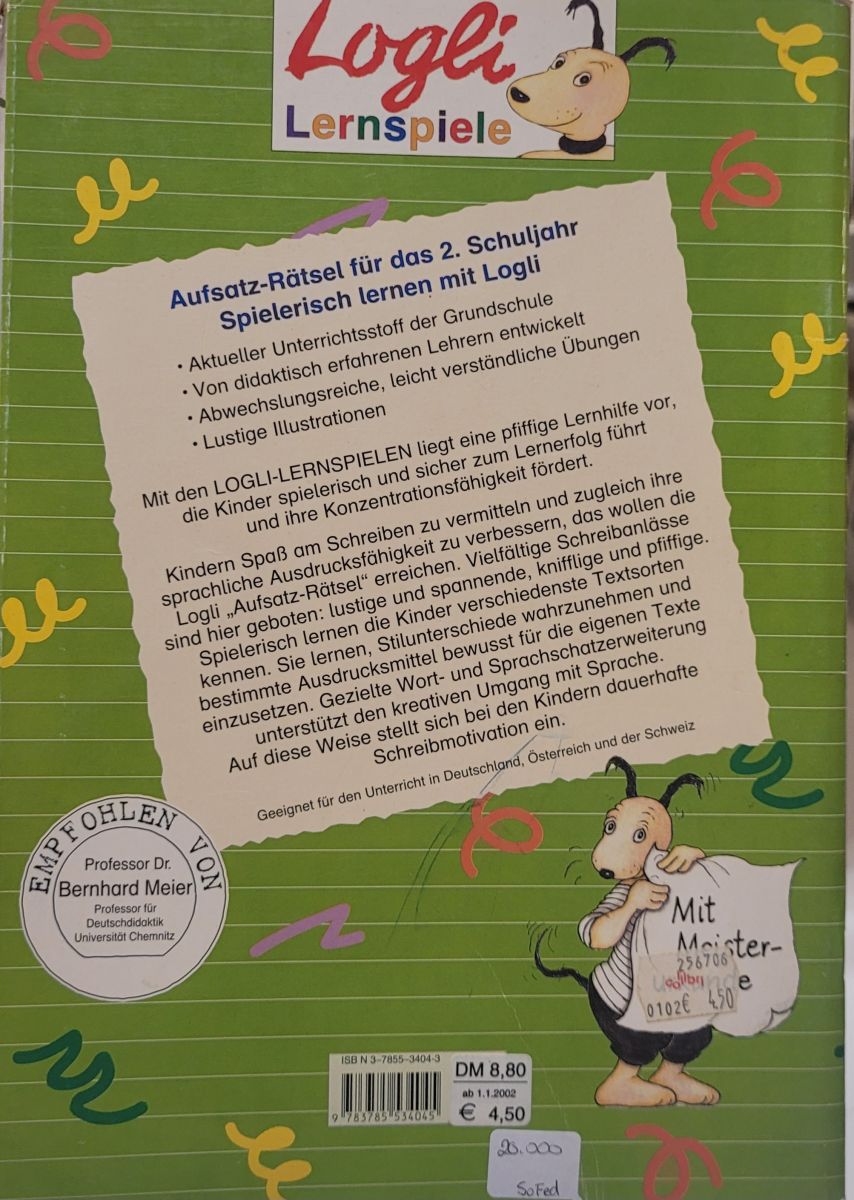 Logli
Lernspiele
Aufsatz-Rätsel für das 2. Schuljahr
Spielerisch lernen mit Logli
• Aktueller Unterrichtsstoff der Grundschule
• Von didaktisch erfahrenen Lehrern entwickelt
• Abwechslungsreiche, leicht verständliche Übungen
• Lustige Illustrationen
Mit den LOGLI-LERNSPIELEN liegt eine pfiffige Lernhilfe vor,
die Kinder spielerisch und sicher zum Lernerfolg führt
und ihre Konzentrationsfähigkeit fördert.
Kindern Spaß am Schreiben zu vermitteln und zugleich ihre
sprachliche Ausdrucksfähigkeit zu verbessern, das wollen die
Logli „Aufsatz-Rätsel“ erreichen. Vielfältige Schreibanlässe
sind hier geboten: lustige und spannende, knifflige und pfiffige.
Spielerisch lernen die Kinder verschiedenste Textsorten
kennen. Sie lernen, Stilunterschiede wahrzunehmen und
bestimmte Ausdrucksmittel bewusst für die eigenen Texte
einzusetzen. Gezielte Wort- und Sprachschatzerweiterung
unterstützt den kreativen Umgang mit Sprache.
Auf diese Weise stellt sich bei den Kindern dauerhafte
Schreibmotivation ein.
Geeignet für den Unterricht in Deutschland, Österreich und der Schweiz
EMPFOHLEN VON
Professor Dr.
Bernhard Meier
Professor für
Deutschdidaktik
Universität Chemnitz
Mit
Meister-
256706
0102€ 4,50
ISBN 3-7855-3404-3
9 783785 534045
DM 8,80
ab 1.1.2002
€ 4,50
20.000
SoFed